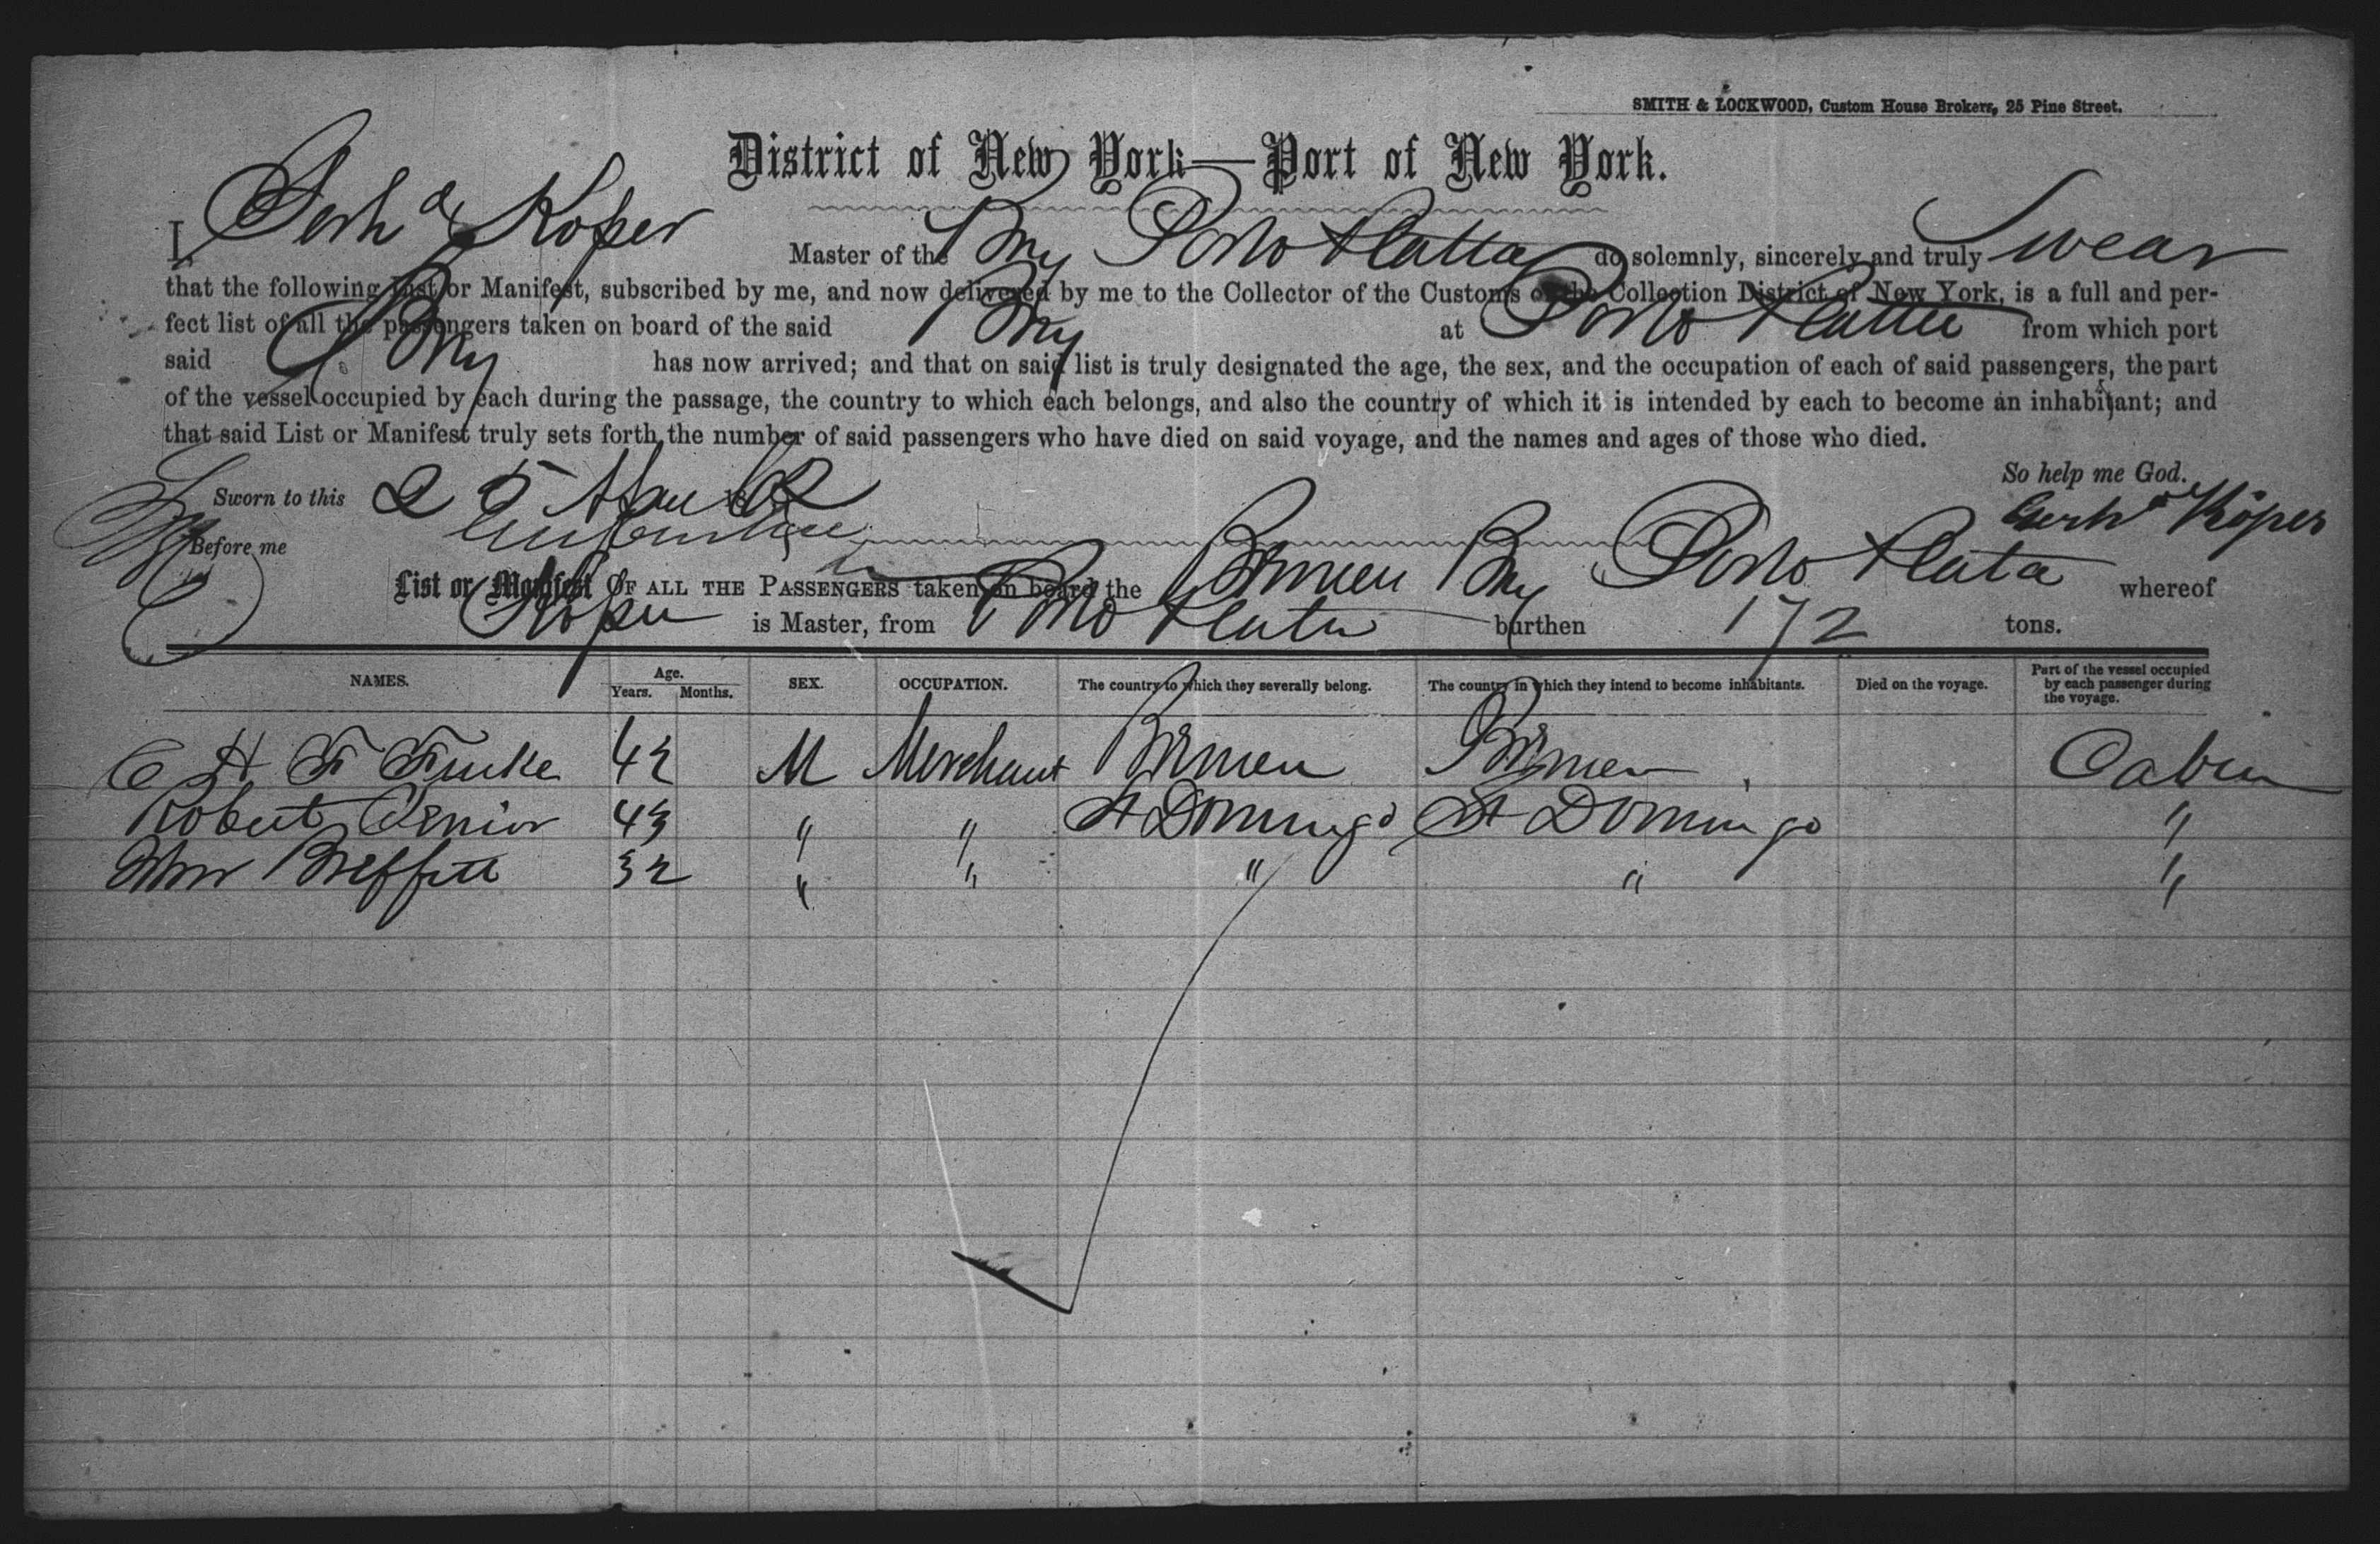 SMITH & LOCKWOOD, Custom House Brokers, 25 Pine Street.
District of New York—Port of New York.
I, Gerh d Koper Master of the Brig Porto Platta do solemnly, sincerely and truly Swear
that the following List or Manifest, subscribed by me, and now delivered by me to the Collector of the Customs of the Collection District of New York, is a full and per-
fect list of all the passengers taken on board of the said Brig at Porto Platta from which port
said Brig has now arrived; and that on said list is truly designated the age, the sex, and the occupation of each of said passengers, the part
of the vessel occupied by each during the passage, the country to which each belongs, and also the country of which it is intended by each to become an inhabitant; and
that said List or Manifest truly sets forth the number of said passengers who have died on said voyage, and the names and ages of those who died.
So help me God.
Sworn to this 25 Gerhd Köper
Before me
List or Manifest OF ALL THE PASSENGERS taken on board the Bremen Brig Porto Plata whereof
Koper is Master, from Porto Plata burthen 172 tons.
NAMES. Age. Years. Months. SEX. OCCUPATION. The country to which they severally belong. The country in which they intend to become inhabitants. Died on the voyage. Part of the vessel occupied by each passenger during the voyage.
C H F Funke 42 M Merchant Bremen Bremen Cabin
Robert Senior 43 " " St Domingo St Domingo "
Wm Breffitt 32 " " " " "